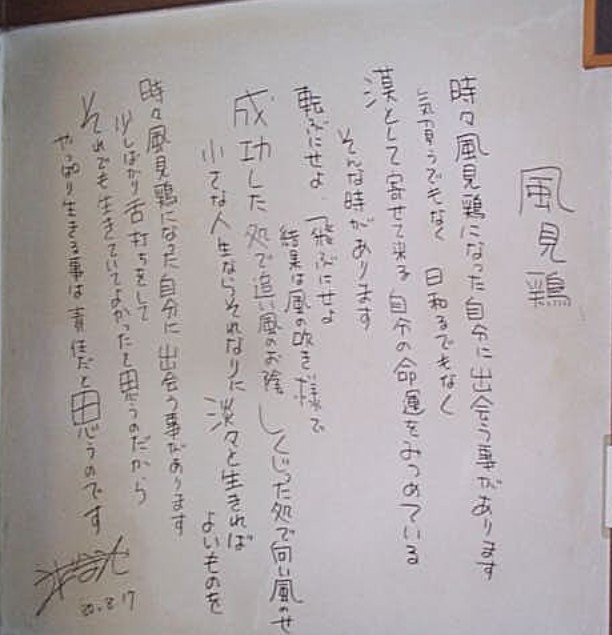 風見鶏
時々風見鶏になった自分に出会う事があります
気負うでもなく 日和るでもなく
漠として寄せて来る 自分の命運をみつめている
そんな時があります
転ぶにせよ、飛ぶにせよ
結果は風の吹き様で
成功した処で追い風のお陰 しくじった処で向い風のせ
小さな人生ならそれなりに 淡々と生きれば
よいものを
時々風見鶏になった自分に出会う事があります
少しばかり舌打ちをして
それでも生きていてよかったと思うのだから
やっぱり生きる事は責任だと思うのです
20.2.17